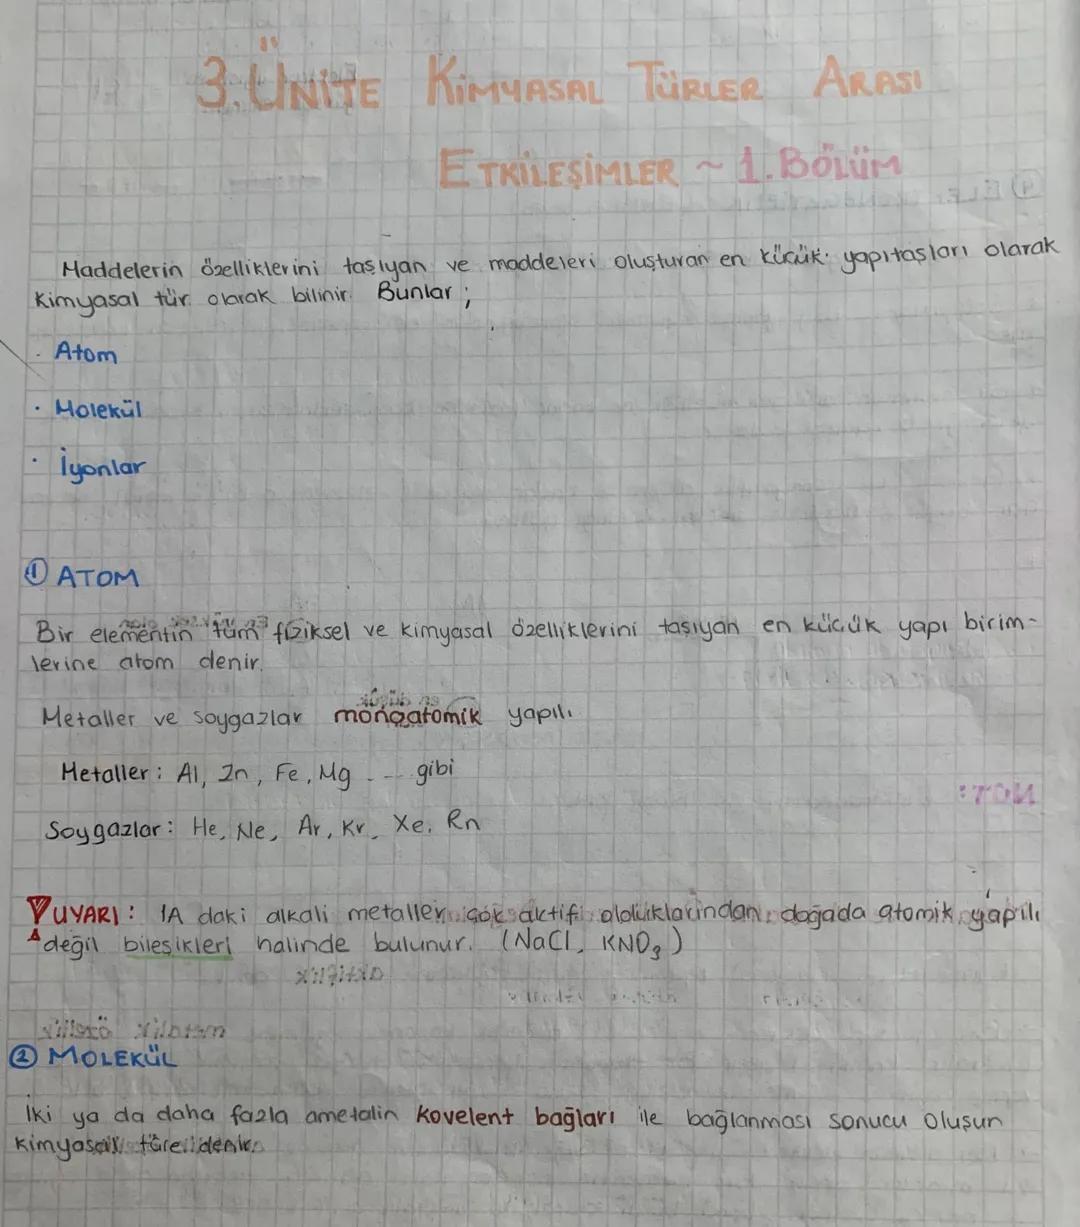 3.ÜNİTE KİMYASAL TÜRLER ARASI
ETKİLEŞİMLER ~ 1.BÖLÜM
Maddelerin özelliklerini taşıyan ve maddeleri oluşturan en küçük yapıtaşları olarak
kimyasal tür olarak bilinir. Bunlar ;
· Atom
· Molekül
· İyonlar
① ATOM
Bir elementin tüm fiziksel ve kimyasal özelliklerini taşıyan en küçük yapı birim-
lerine atom denir.
Metaller ve soygazlar monoatomik yapılı
Metaller : Al, Zn, Fe, Mg ... gibi
Soygazlar : He, Ne, Ar, Kr, Xe, Rn
UYARI : 1A daki alkali metaller çok aktif olduklarından doğada atomik yapılı
değil bileşikleri halinde bulunur. (NaCl, KNO₃)
② MOLEKÜL
İki ya da daha fazla ametalin kovelent bağları ile bağlanması sonucu oluşun
kimyasal türe denir.